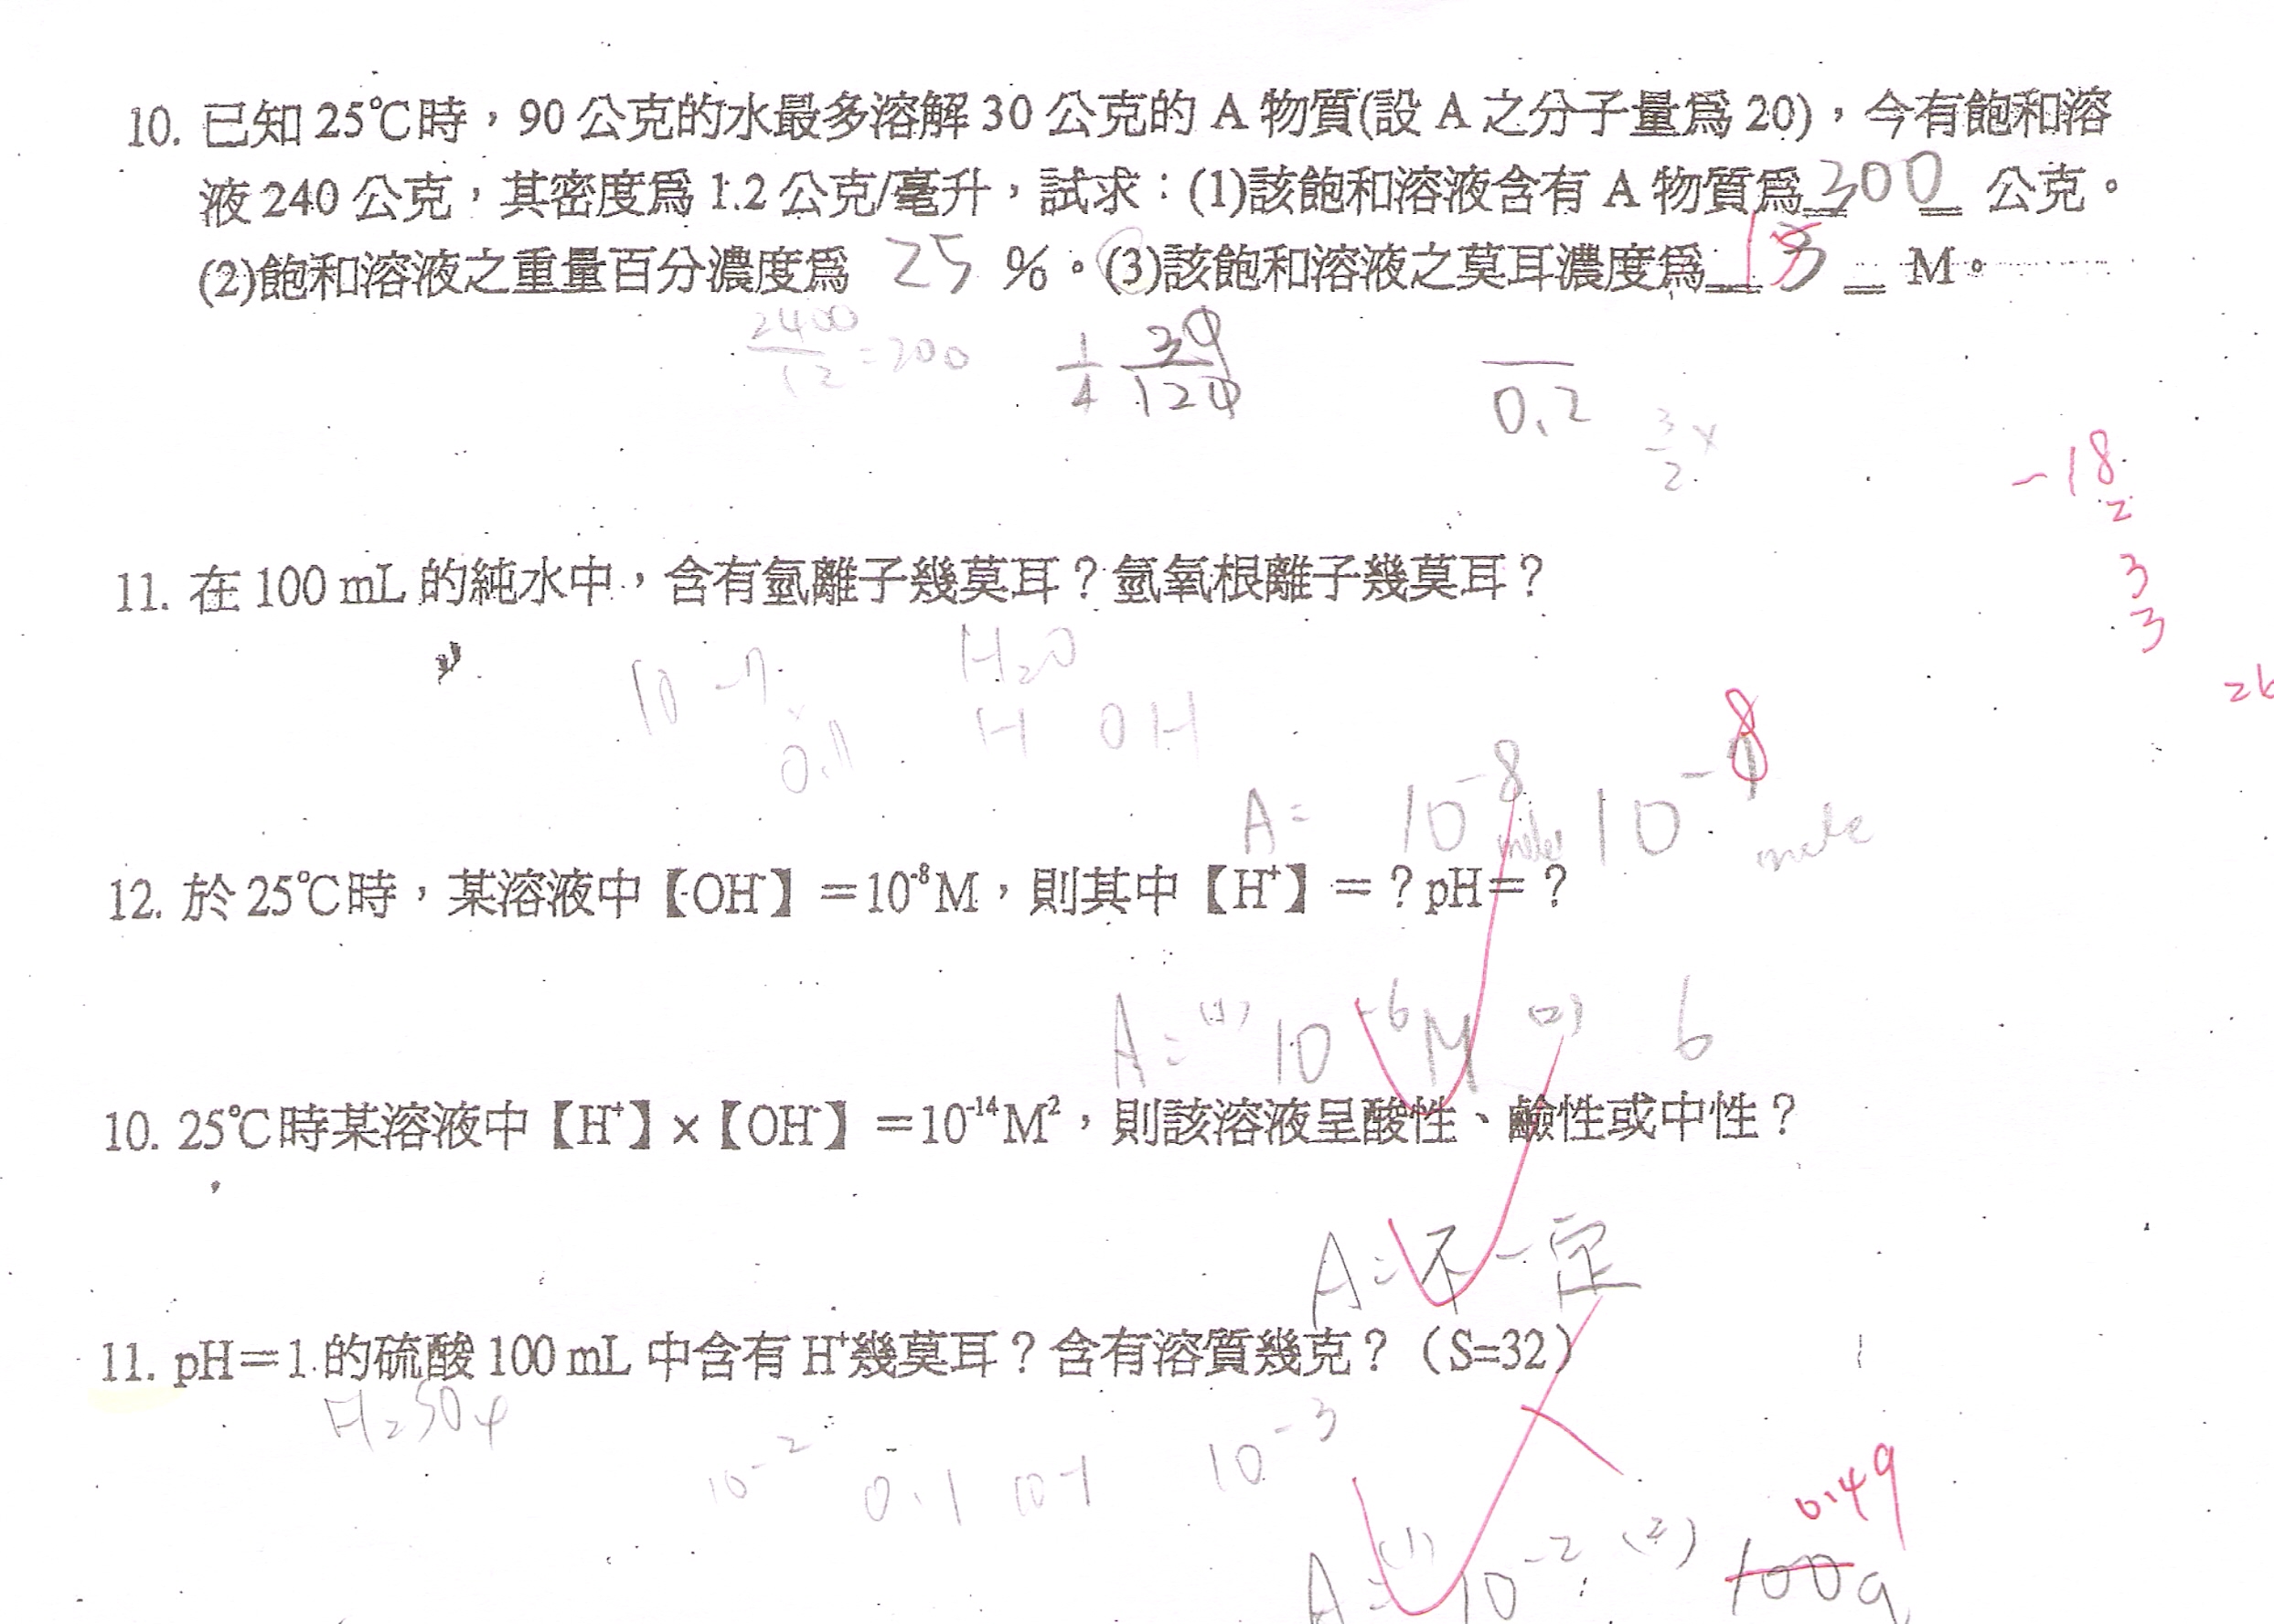 10. 已知25℃時，90公克的水最多溶解30公克的A物質(設A之分子量爲20)，今有飽和溶
液240公克，其密度爲1.2公克/毫升，試求：(1)該飽和溶液含有A物質爲 300 公克。
(2)飽和溶液之重量百分濃度爲 25 %。(3)該飽和溶液之莫耳濃度爲 15 M。
2400/12=200 1/4 30/120 0.2 3/2 x
-18
2
11. 在100 mL的純水中，含有氫離子幾莫耳？氫氧根離子幾莫耳？
3
3
26
10 -7 x 0.1 H2O
H OH
A= 10^-8 mole 10^-8 mole
12. 於25℃時，某溶液中【OH⁻】＝10⁻⁸M，則其中【H⁺】＝？pH＝？
A= (1) 10^-6 M (2) 6
10. 25℃時某溶液中【H⁺】×【OH⁻】＝10⁻¹⁴M²，則該溶液呈酸性、鹼性或中性？
A=不一定
11. pH＝1的硫酸100 mL中含有H⁺幾莫耳？含有溶質幾克？（S=32）
H2SO4
10^-2 0.1 10^-1 10^-3
0.49
A= (1) 10^-2 (2) 100g